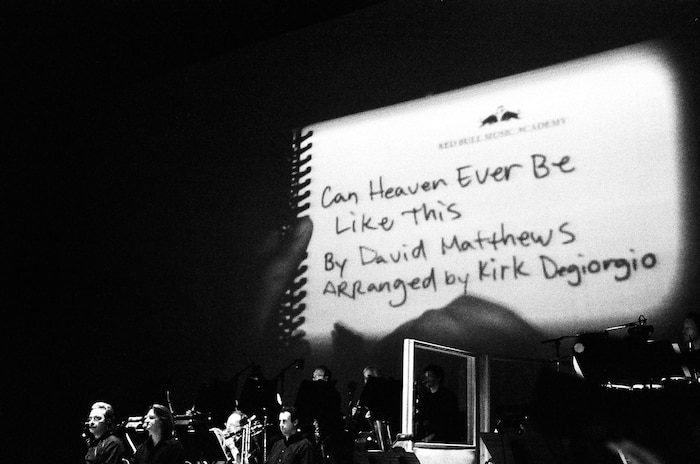 RED BULL MUSIC ACADEMY
Can Heaven Ever Be
Like This
By David Matthews
ARRanged by Kirk Degiorgio